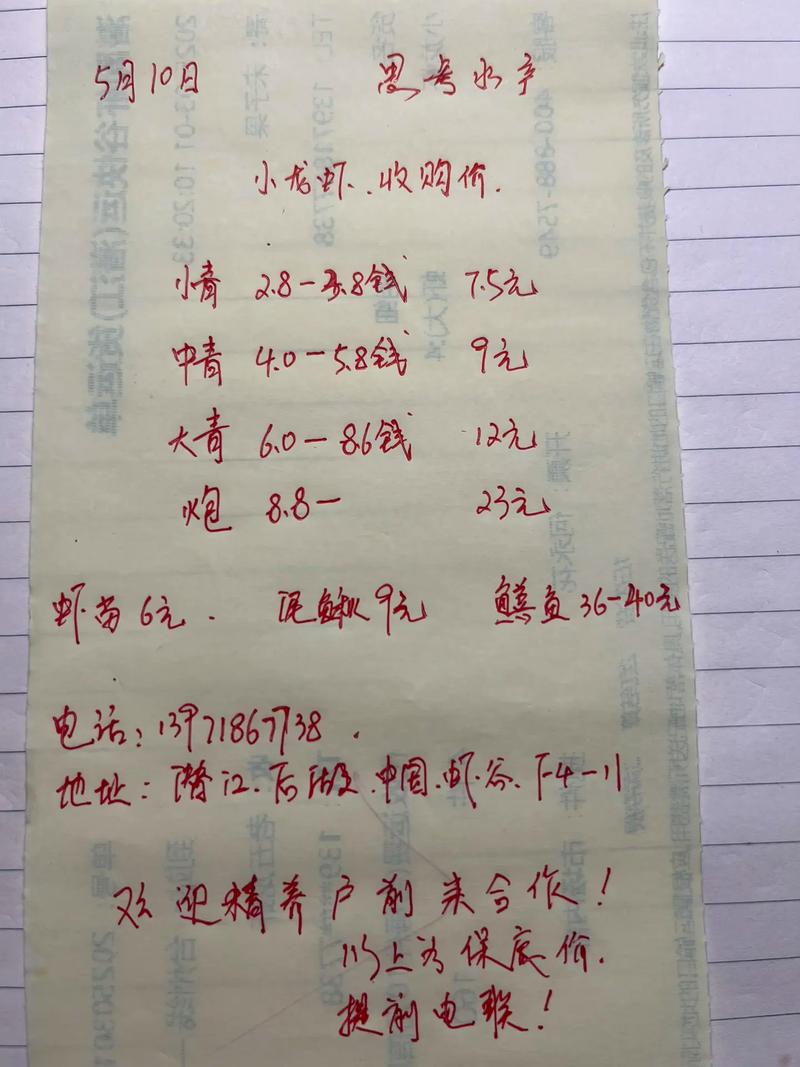 5月10日 思考水产
小龙虾.收购价.
小青 2.8-3.8钱 7.5元
中青 4.0-5.8钱 9元
大青 6.0-8.6钱 12元
炮 8.8- 23元
虾苗6元. 泥鳅9元 鳝鱼36-40元
电话:13971867738.
地址:潜江.后湖.中国.虾谷.F-4-11
欢迎精养户前来合作!
以上为保底价.
提前电联!